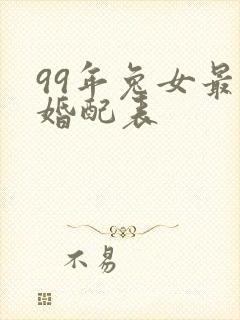 99年兔女最
婚配表
不易